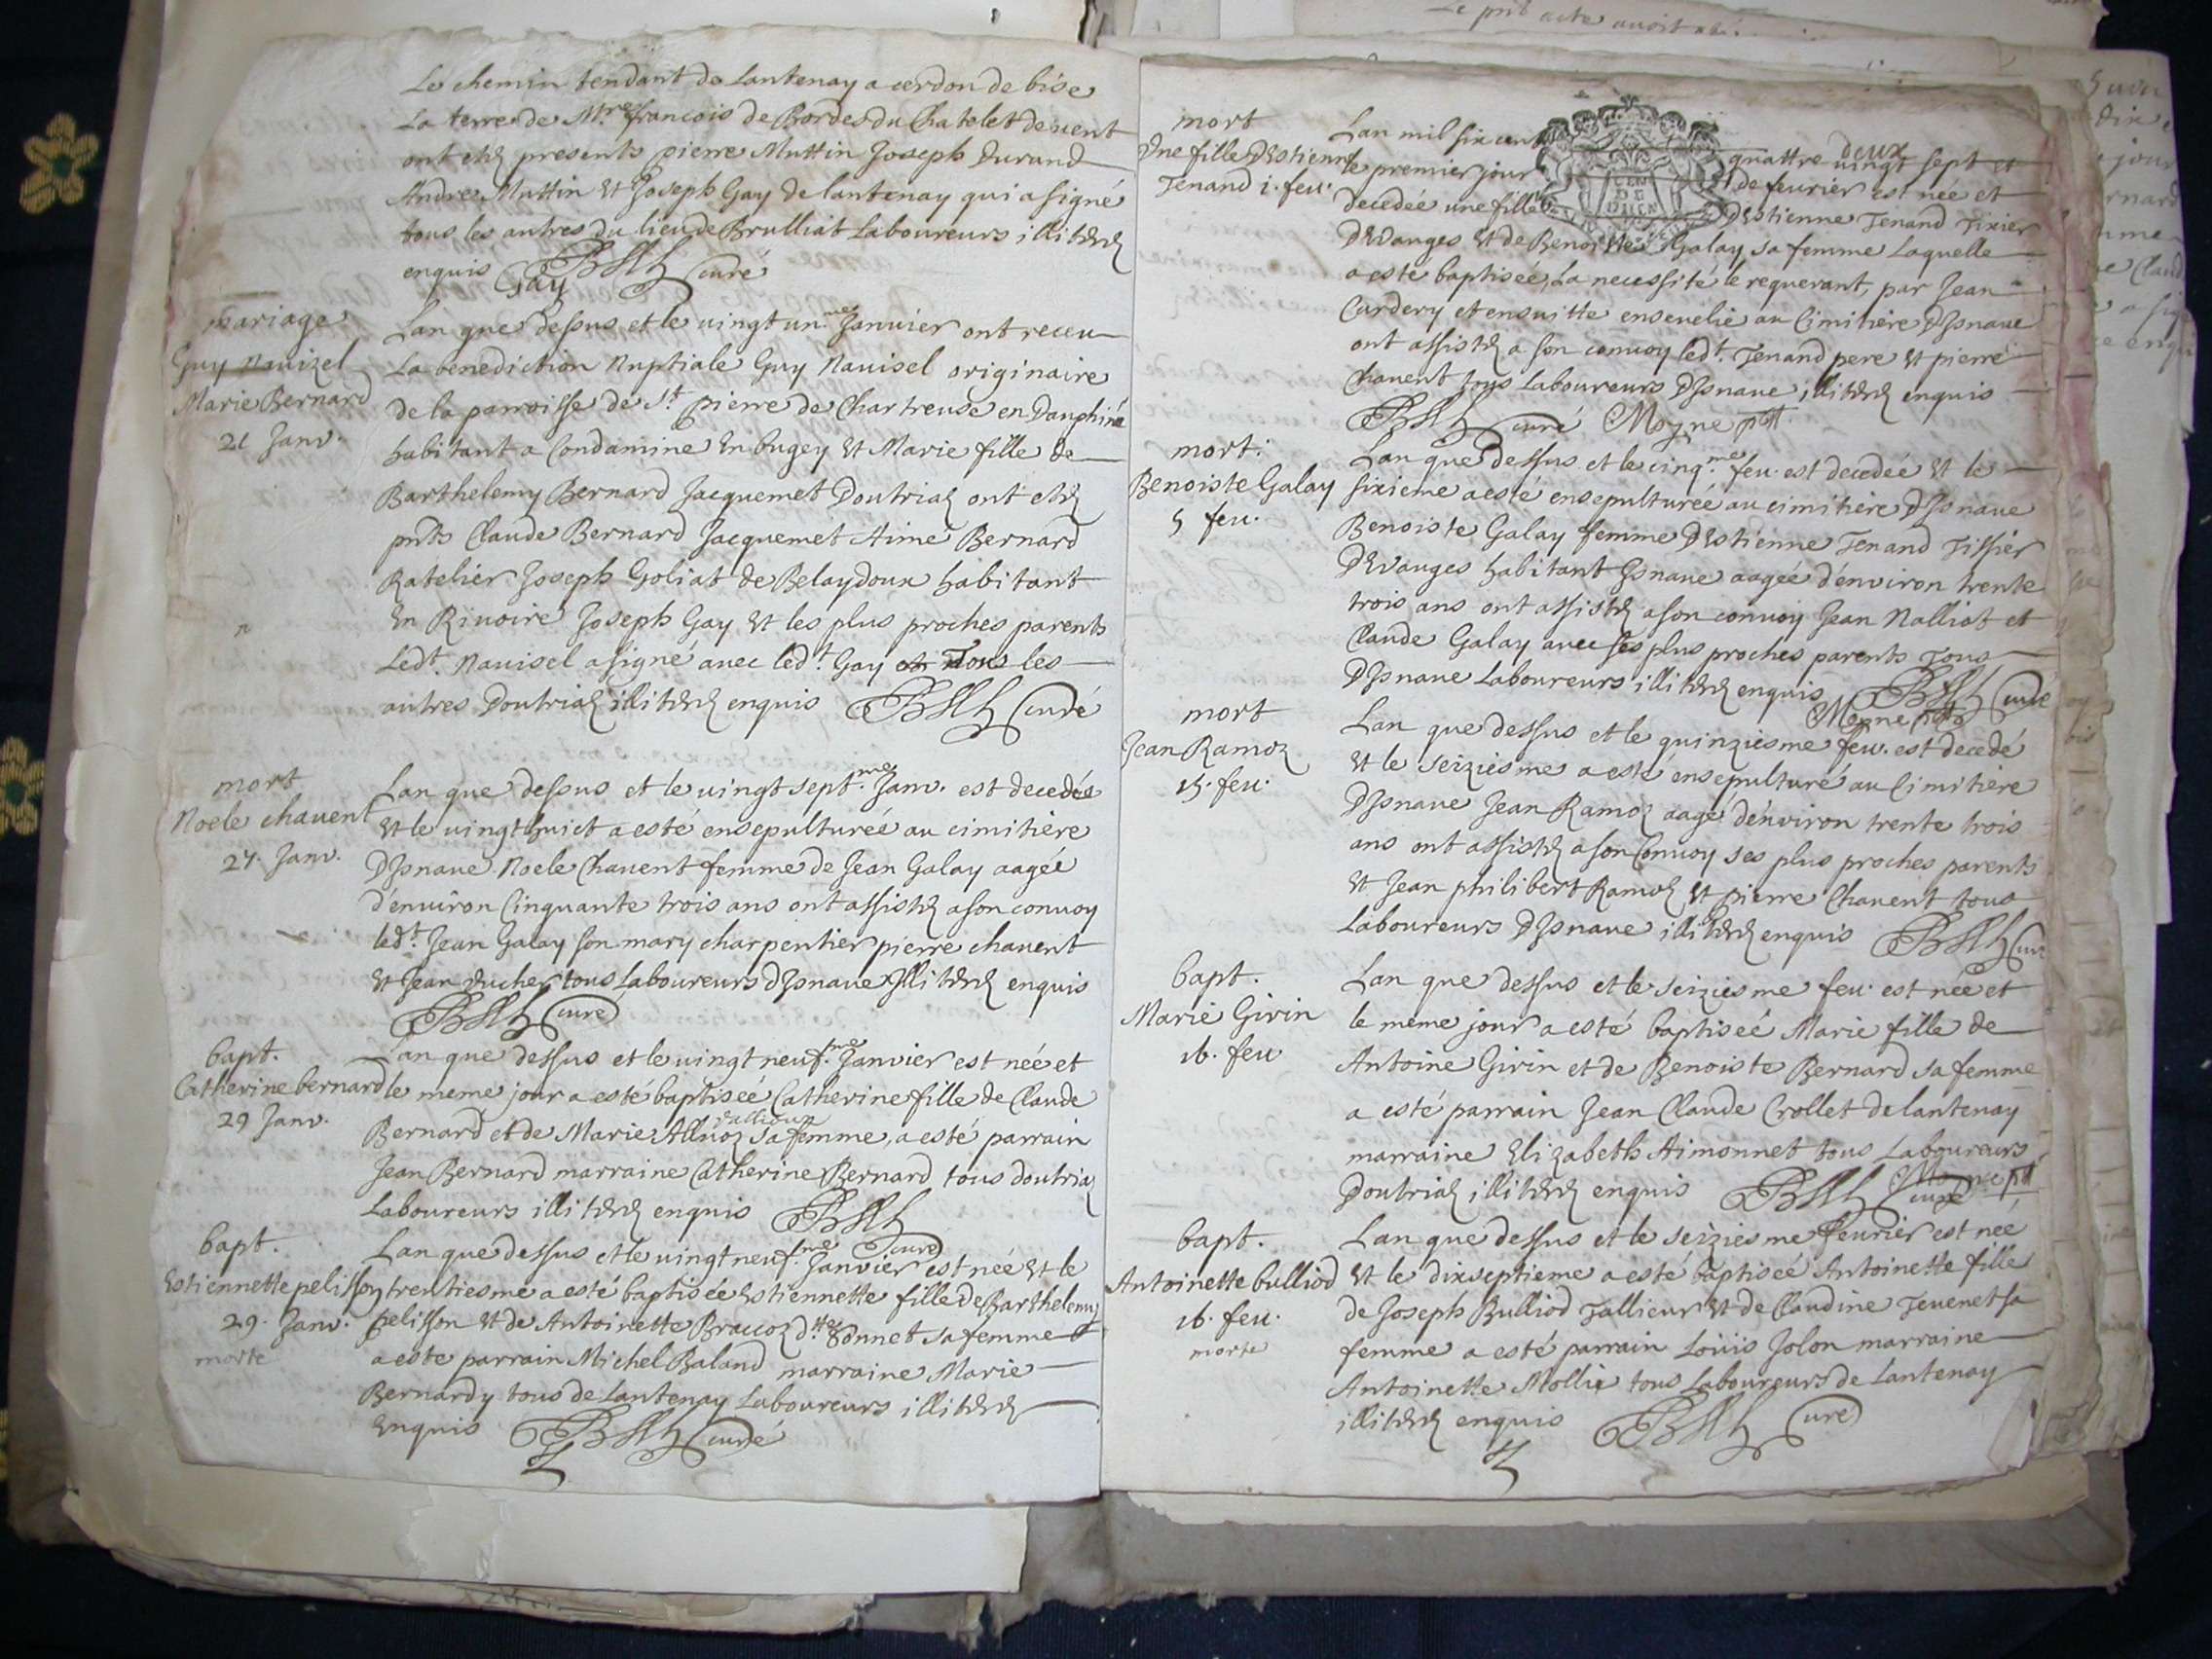 Le chemin tendant de Lantenay a cerdon de bise
La terre de Mre francois de Bordes du Chatelet de vent
ont etez presents pierre Muttin Joseph Durand
Andre Muttin et Joseph Gay de lantenay qui a signé
tous les autres du lieu de Brulliat Laboureurs illiterez
enquis Gay curé
mariage
Guy Navizel
Marie Bernard
21 Janv.
Lan que dessus et le vingt un.me Janvier ont receu
La benediction Nuptiale Guy Navisel originaire
de la parroisse de St. pierre de Chartreuse en Dauphiné
habitant a Condamine en bugey et Marie fille de
Barthelemy Bernard Jacquemet Doutriaz ont etez
pnts Claude Bernard Jacquemet Aime Bernard
Ratelier Joseph Goliat de Belaydoux habitant
En Rivoire Joseph Gay et les plus proches parents
Ledt. Navisel a signé avec ledt. Gay Tous les
autres Doutriaz illiterez enquis curé
mort
Noele chavent
27. Janv.
Lan que dessus et le vingt sept.me Janv. est decedée
et le vingthuict a esté ensepulturée au cimitiere
DIsnave Noele Chavent femme de Jean Galay aagée
d'environ Cinquante trois ans ont assistez a son convoy
ledt. Jean Galay son mary charpentier pierre chavent
et Jean ducher tous Laboureurs dIsnave Illiterez enquis
curé
bapt.
Catherine bernard
29 Janv.
Lan que dessus et le vingt neuf.me Janvier est née et
le meme jour a esté baptiseé Catherine fille de Claude
Bernard et de Marie sa femme, a esté parrain
Jean Bernard marraine Catherine Bernard tous doutriaz
Laboureurs illiterez enquis curé
bapt.
Estiennette pelisson
29. Janv.
morte
Lan que dessus et le vingt neuf.me Janvier est née et le
trentiesme a esté baptisée Estiennette fille de Barthelemy
pelisson et de Antoinette Bravoz dtte Donnet sa femme
a este parrain Michel Baland marraine Marie
Bernardy tous de Lantenay Laboureurs illiterez
Enquis curé
mort
Une fille DEstienne
Tenand 1. feu.
Lan mil six cent quattre vingt deux sept et
le premier jour de fevrier est née et
decedée une fille DEstienne Tenand Tixier
DEvanges et de Benoiste Galay sa femme Laquelle
a esté baptisée, La necessité le requerant, par Jean
Curdery et ensuitte ensevelie au Cimitiere DIsnave
ont assistez a son convoy ledt. Tenand pere et pierre
Chavent tous Laboureurs DIsnave, illiterez enquis
curé Moyne pbt
mort.
Benoiste Galay
5 feu.
Lan que dessus et le cinq.me feu. est decedée et le
sixieme a esté ensepulturée au cimitiere DIsnave
Benoiste Galay femme DEstienne Tenand Tissier
DEvanges habitant Isnave aagée d'environ trente
trois ans ont assistez a son convoy Jean Nalliot et
Claude Galay avec ses plus proches parents Tous
DIsnave Laboureurs illiterez enquis curé
Moyne pbt
mort
Jean Ramoz
15. feu.
Lan que dessus et le quinziesme feu. est decedé
et le seiziesme a esté ensepulturé au Cimitiere
DIsnave Jean Ramoz aagé d'environ trente trois
ans ont assistez a son Convoy ses plus proches parents
et Jean philibert Ramoz et pierre Chavent tous
Laboureurs DIsnave illiterez enquis curé
bapt.
Marie Girin
16. feu
Lan que dessus et le seiziesme feu. est née et
le meme jour a esté baptiseé Marie fille de
Antoine Girin et de Benoiste Bernard sa femme
a esté parrain Jean Claude Crollet de lantenay
marraine Elizabeth Aimonnet tous Laboureurs
Doutriaz illiterez enquis curé Moyne pbt
bapt.
Antoinette bulliod
16. feu.
morte
Lan que dessus et le seiziesme fevrier est née
et le dixseptieme a esté baptiseé Antoinette fille
de Joseph Bulliod Tallieur et de Claudine Tevenet sa
femme a esté parrain Loüis Jolon marraine
Antoinette Mollie tous Laboureurs de Lantenay
illiterez enquis curé